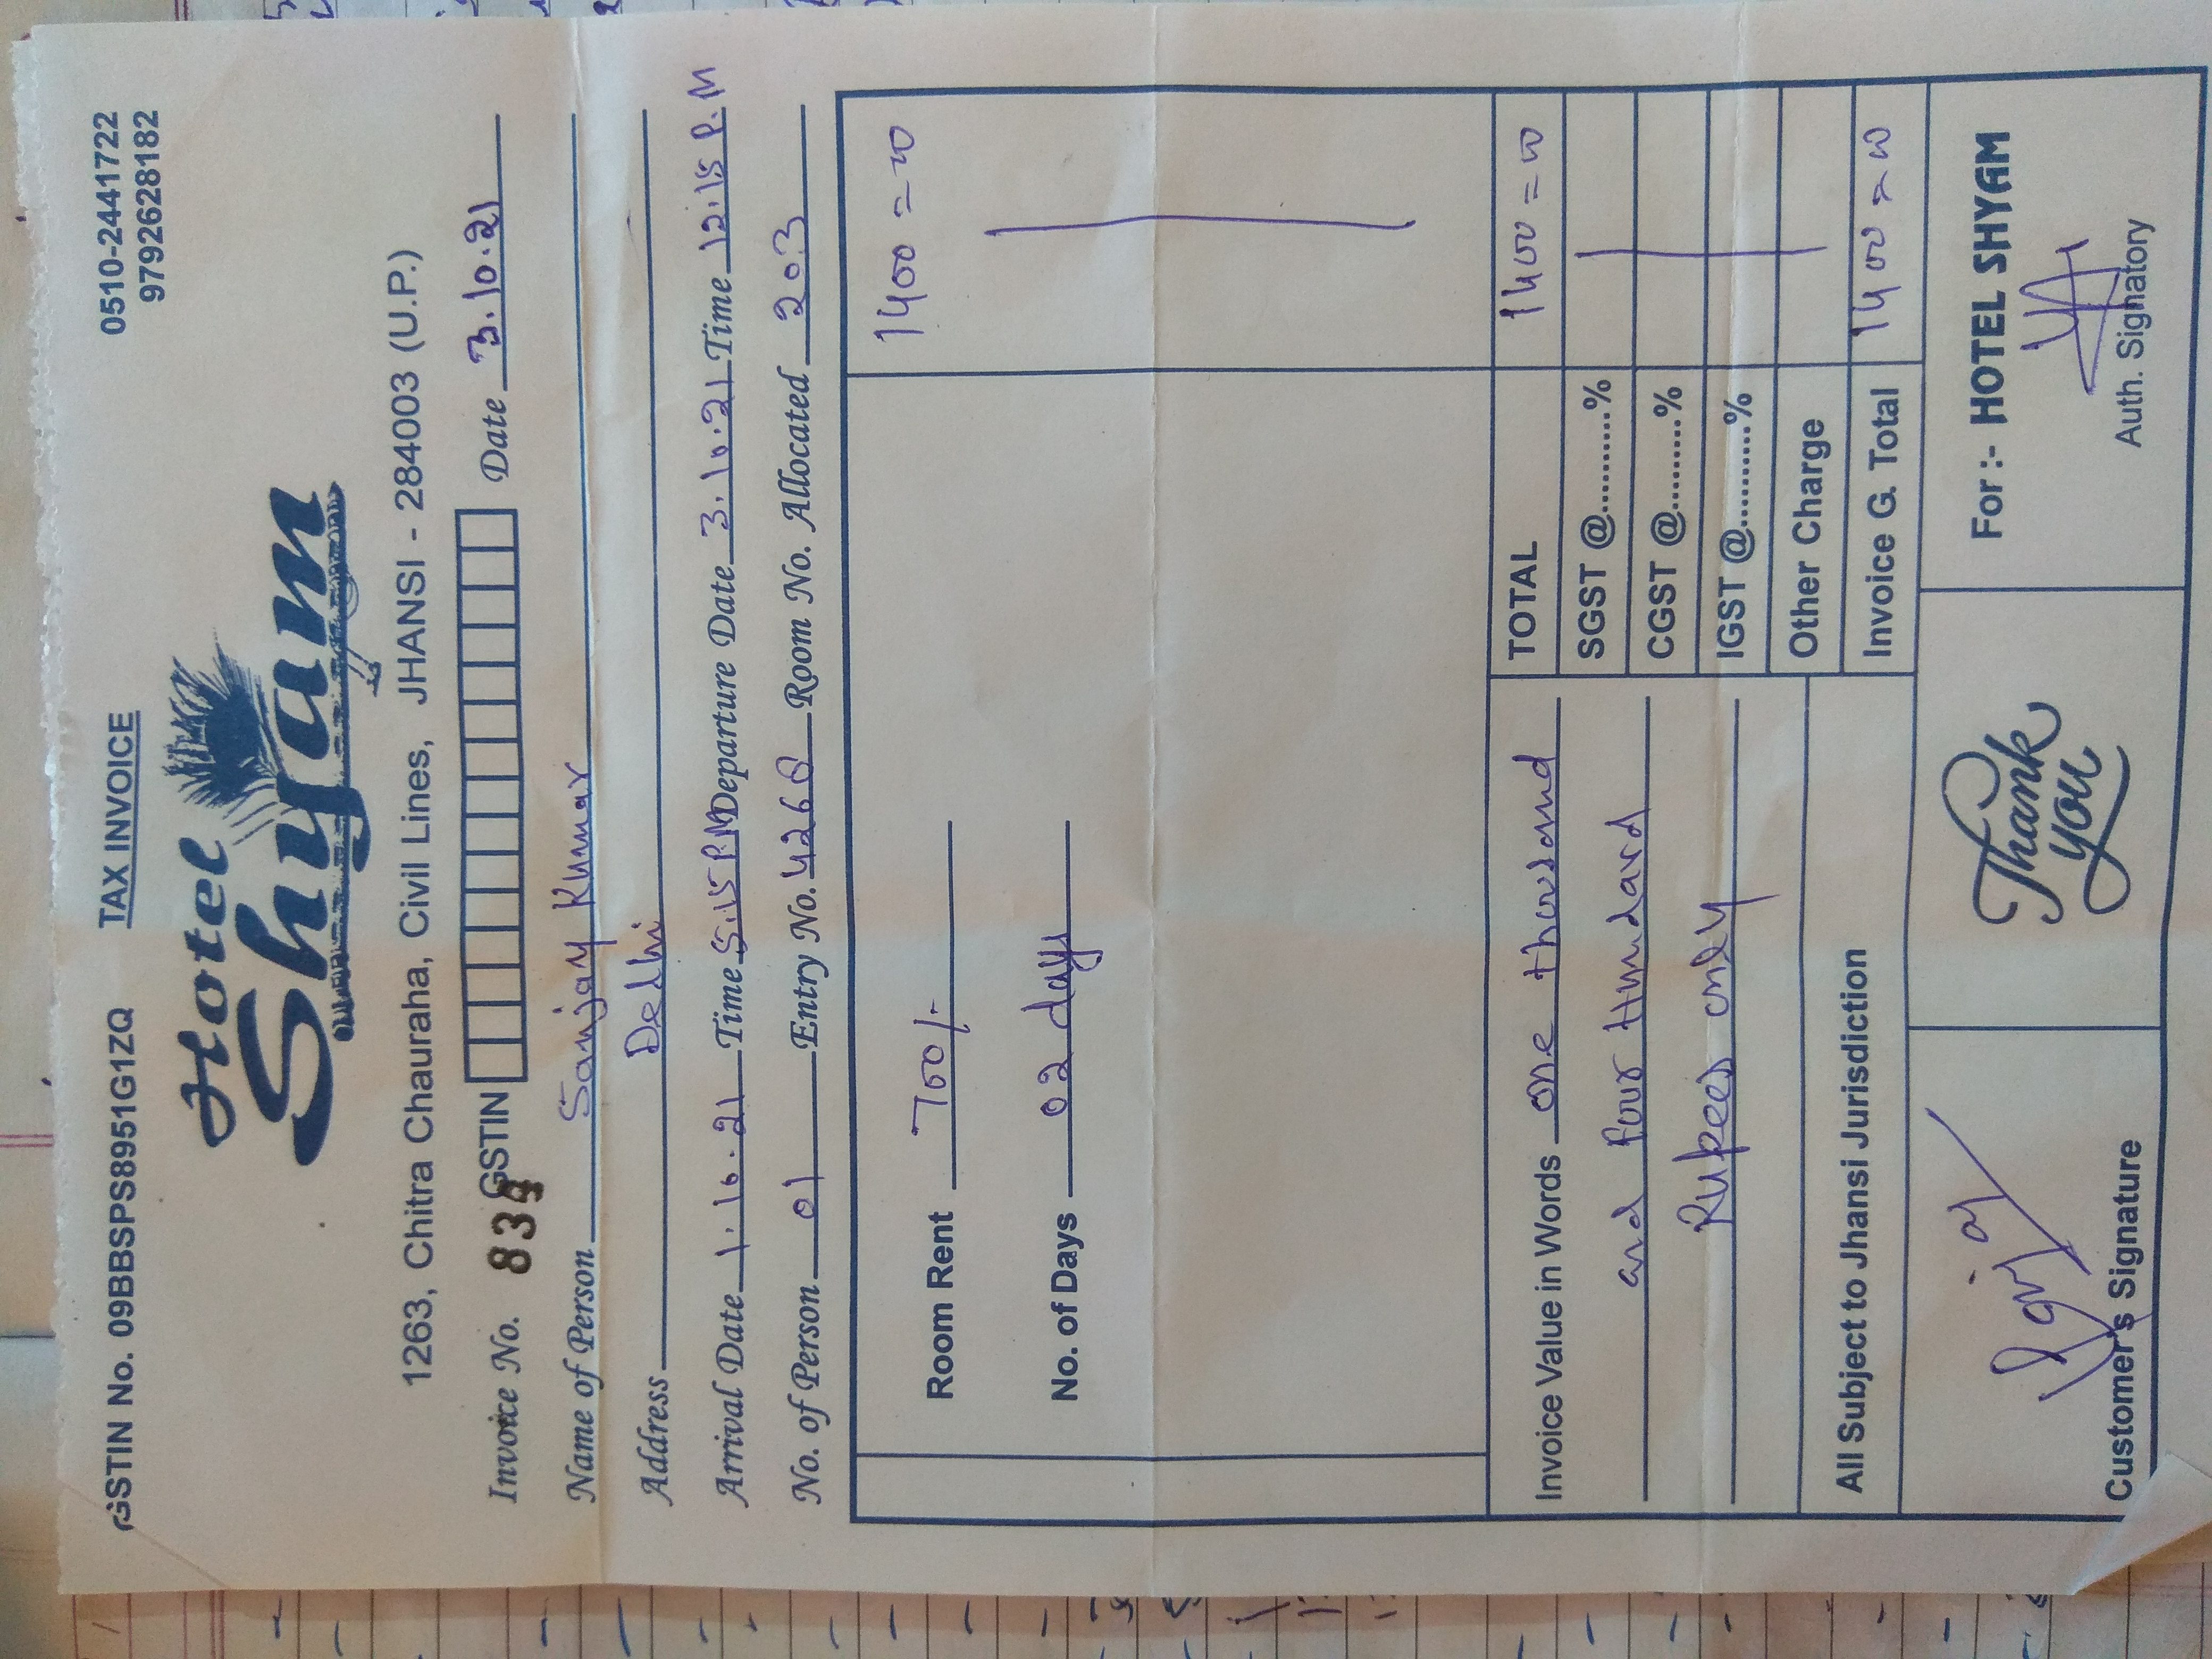 GSTIN No. 09BBSPS8951G1ZQ TAX INVOICE 0510-2441722
9792628182
Hotel
Shyam
1263, Chitra Chauraha, Civil Lines, JHANSI - 284003 (U.P.)
Invoice No. 834 GSTIN Date 3.10.21
Name of Person Sanjay Kumar
Address Delhi
Arrival Date 1.10.21 Time 5.15 P.M Departure Date 3.10.21 Time 12.15 P.M
No. of Person 01 Entry No. 4268 Room No. Allocated 203
Room Rent 700/- 1400=00
No. of Days 02 days
Invoice Value in Words one thousand TOTAL 1400=00
and four Hundard SGST @..........%
Rupees only CGST @..........%
IGST @..........%
Other Charge
All Subject to Jhansi Jurisdiction Invoice G. Total 1400=00
Thank
you
For :- HOTEL SHYAM
Customer's Signature Auth. Signatory